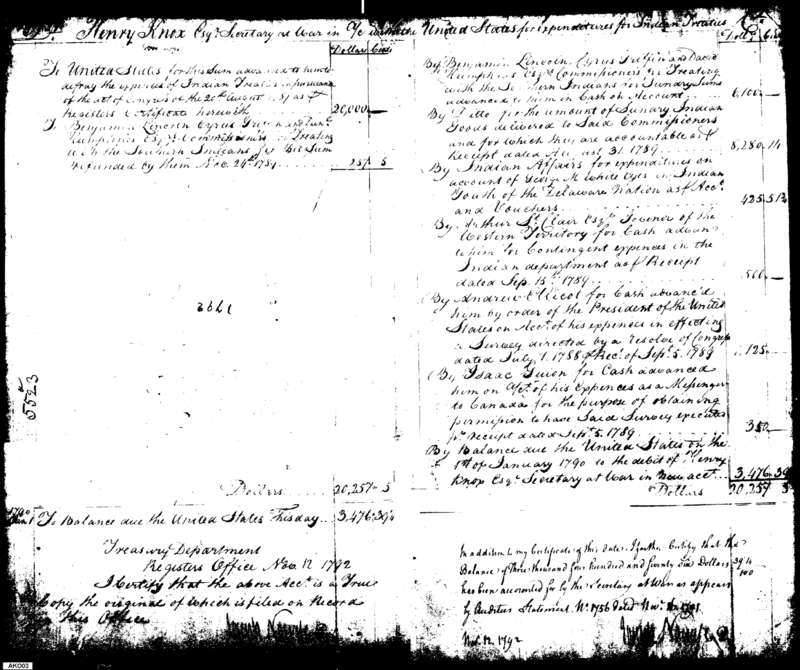 Dr. Henry Knox Esqr. Secretary at War in with the United States for Expenditures for Indian Treaties Cr.
Dollars Cents
To United States for this Sum advanced to him to
defray the expences of Indian Treaties in pursuance
of the act of Congress of the 20th August 1789 as pr
Registers Certificate herewith 20,000
To Benjamin Lincoln Cyrus Griffin and David
Humphries Esqrs Commissioners for Treating
with the Southern Indians for this Sum
refunded by them Nov. 24th 1789 257 5
3361
5523
Dollars 20,257 5
1790
Jany 1 To Balance due the United States this day 3,476 39
Treasury Department
Registers Office Nov. 12 1792
I Certify that the above Acct. is a True
Copy the original of which is filed on Record
in this Office
Dolls. Cents
By Benjamin Lincoln, Cyrus Griffin and David
Humphries Esqrs Commissioners for Treating
with the Southern Indians for Sundry Sums
advanced to them in Cash on Account 6,100
By Ditto for the amount of Sundry Indian
Goods delivered to Said Commissioners
and for which they are accountable as pr
Receipt dated August 31. 1789 8,280 14
By Indian Affairs for expenditures on
account of George M. White Eyes an Indian
Youth of the Delaware Nation as pr Acct.
and Vouchers 425 51
By Arthur St. Clair Esqr. Govenor of the
Western Territory for Cash advanced
to him for Contingent expences in the
Indian department as pr Receipt
dated Sep. 15th 1789 500
By Andrew Ellicot for Cash advanc'd
him by order of the President of the United
States on Acct. of his expences in effecting
a Survey directed by a resolve of Congress
dated July 1. 1788 pr Rect. of Sept. 5. 1789 1,125
By Isaac Guion for Cash advanced
him on Acct. of his Expences as a Messenger
to Canada for the purpose of obtaining
permission to have Said Survey executed
pr Receipt dated Sept. 5. 1789 350
By Balance due the United States on the
1st of January 1790 to the debit of Henry
Knox Esqr. Secretary at War in New acct. 3,476 39
Dollars 20,257 5
In addition to my Certificate of this date, I further Certify that the
Balance of Three thousand four hundred and seventy six Dollars 39/100
has been accounted for by the Secretary at War as appears
by Auditors Statement No. 1756 dated
Nov. 12. 1792
AKO03